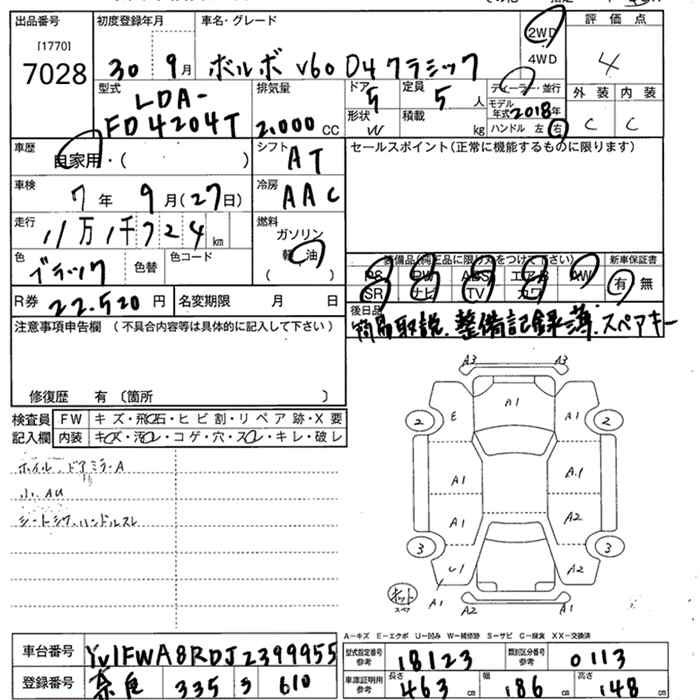 出品番号 初度登録年月 車名・グレード 2WD 評価点
[1770]
7028 30 9月 ボルボ V60 D4 クラシック 4WD 4
型式 排気量 ドア 5 定員 5人 ディーラー・並行 外装 内装
LDA-
FD4204T 2.000cc 形状 W 積載 kg モデル年式 2018年 C C
ハンドル 左 右
車歴 自家用・( ) シフト AT セールスポイント(正常に機能するものに限ります)
車検 7年 9月(27日) 冷房 AAC
走行 11万1千724km 燃料 ガソリン
軽油
( )
色 ブラック 色替 色コード 装備品(純正品に限り○をつけて下さい) 新車保証書
PS PW ABS エアB AW 有 無
R券 22.520円 名変期限 月 日 SR ナビ TV カワ
後日品
簡易取説、整備記録簿、スペアキー
注意事項申告欄 (不具合内容等は具体的に記入して下さい)
修復歴 有 〔箇所 〕
検査員 FW キズ・飛石・ヒビ割・リペア跡・X要
記入欄 内装 キズ・汚レ・コゲ・穴・スレ・キレ・破レ
ホイル、ドアミラーA
小、AU
シートシワ、ハンドルスレ
A3 A3
2 E A1 A1 2
A1 A.1
A1 A2
3 3
U1 A2
スペア A1 A2 A1
A-キズ E-エクボ U-凹み W-補修跡 S-サビ C-腐食 XX-交換済
車台番号 YV1FWA8RDJ2399955 型式指定番号 参考 18123 類別区分番号 参考 0113
登録番号 奈良 335 す 610 車庫証明用 参考 長さ 463cm 幅 186cm 高さ 148cm